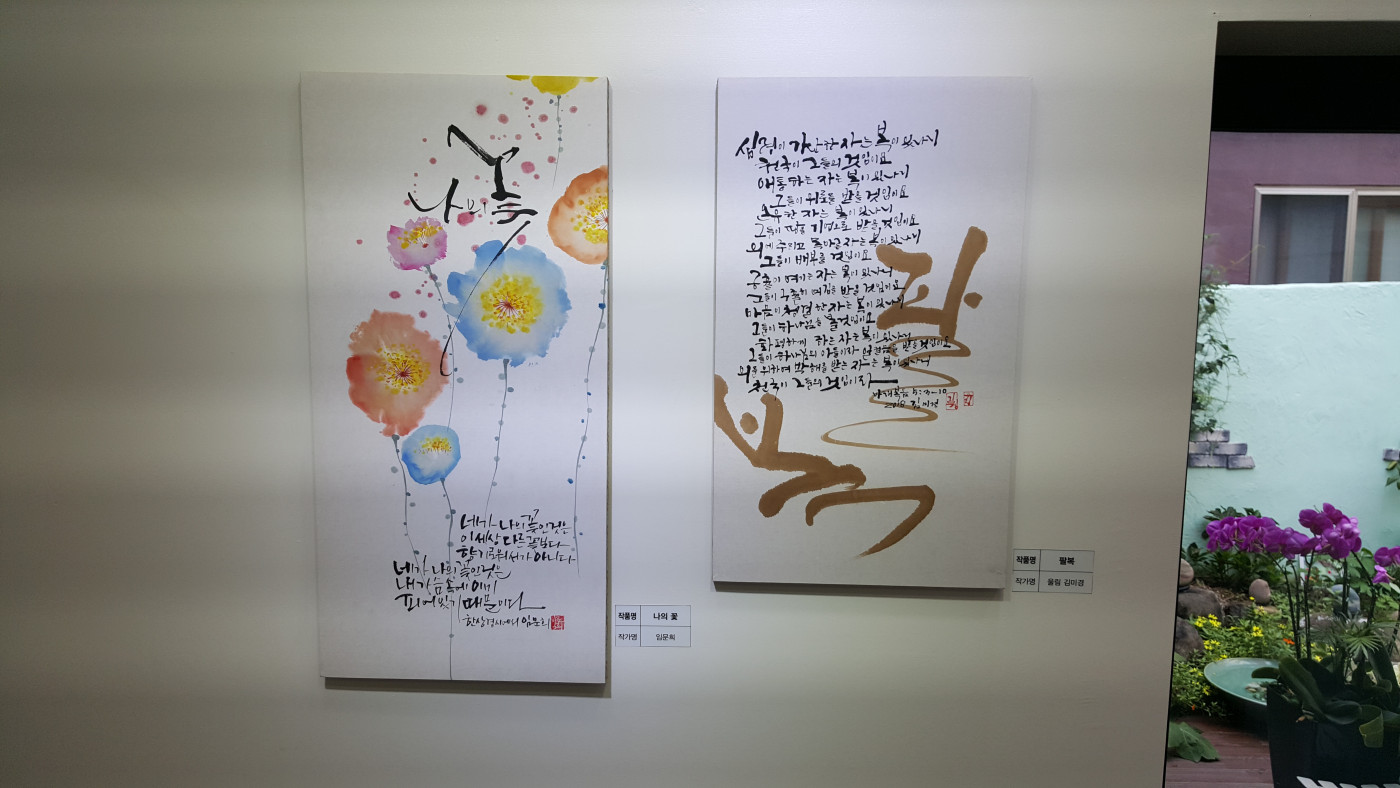 나의 꽃
네가 나의 꽃인 것은
이 세상 다른 꽃보다
향기로워서가 아니다
네가 나의 꽃인 것은
내 가슴속에 이미
피어있기 때문이다
한상경 시에서 임문희
작품명 나의 꽃
작가명 임문희
심령이 가난한 자는 복이 있나니
천국이 그들의 것임이요
애통하는 자는 복이 있나니
그들이 위로를 받을 것임이요
온유한 자는 복이 있나니
그들이 땅을 기업으로 받을 것임이요
의에 주리고 목마른 자는 복이 있나니
그들이 배부를 것임이요
긍휼히 여기는 자는 복이 있나니
그들이 긍휼히 여김을 받을 것임이요
마음이 청결한 자는 복이 있나니
그들이 하나님을 볼 것임이요
화평하게 하는 자는 복이 있나니
그들이 하나님의 아들이라 일컬음을 받을 것임이요
의를 위하여 박해를 받은 자는 복이 있나니
천국이 그들의 것임이라
마태복음 5:3-10
2018 김미경
팔
복
작품명 팔복
작가명 울림 김미경